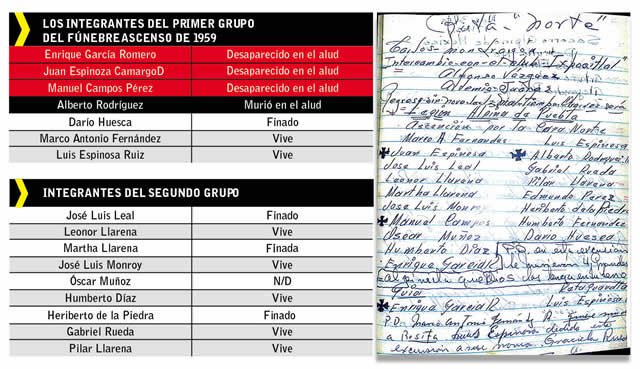 LOS INTEGRANTES DEL PRIMER GRUPO
DEL FÚNEBREASCENSO DE 1959
Enrique García Romero Desaparecido en el alud
Juan Espinoza CamargoD Desaparecido en el alud
Manuel Campos Pérez Desaparecido en el alud
Alberto Rodríguez Murió en el alud
Darío Huesca Finado
Marco Antonio Fernández Vive
Luis Espinosa Ruiz Vive
INTEGRANTES DEL SEGUNDO GRUPO
José Luis Leal Finado
Leonor Llarena Vive
Martha Llarena Finada
José Luis Monroy Vive
Óscar Muñoz N/D
Humberto Díaz Vive
Heriberto de la Piedra Finado
Gabriel Rueda Vive
Pilar Llarena Vive
"Norte"
Carlos
Alfonso Vázquez
Legión Alpina de Puebla
por la Cara Norte
Mario A. Fernandes Luis Espinosa
Juan Espinosa Alberto
Jose Luis Leal Gabriel Rueda
Leonor Llarena Pilar Llarena
Martha Llarena Edmundo Perez
Jose Luis Monroy Heriberto de la Piedra
Manuel Campos Humberto Fernandez
Oscar Muñoz Dario Huesca
Humberto Diaz P.D. en esta excursion
Enrique Garcia R.
Guia
Enrique Garcia R. Luis Espinosa
P.D. Marco Antonio
a Rosita Luis Espinosa
excursion Graciela